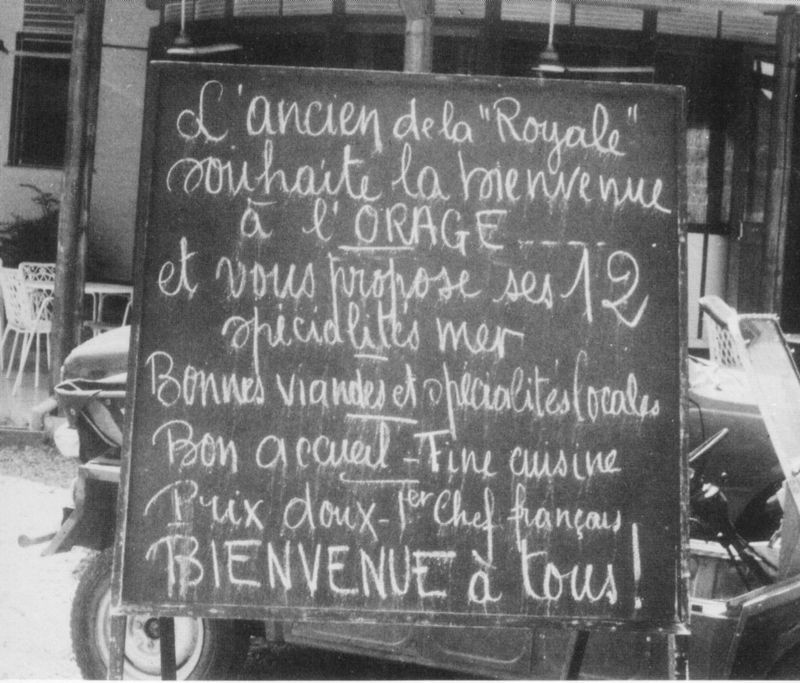 L'ancien de la "Royale"
souhaite la bienvenue
à l'ORAGE ......
et vous propose ses 12
spécialités mer
Bonnes viandes et spécialités locales
Bon accueil - Fine cuisine
Prix doux - 1er Chef français
BIENVENUE à tous!